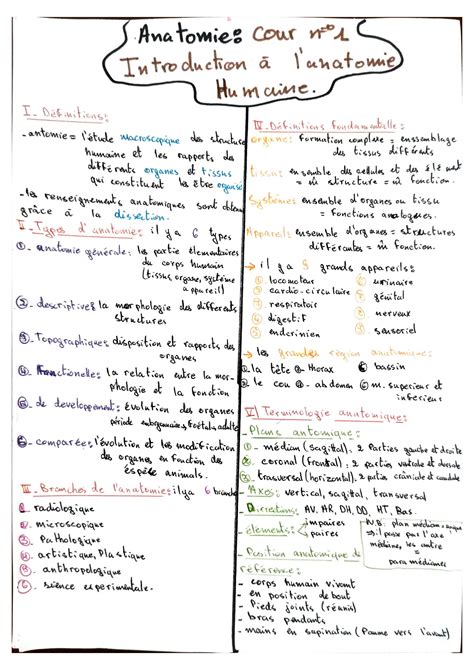 Anatomie: Cour n°1
Introduction à l'anatomie
Humaine.
I - Définitions:
- antomie = l'étude macroscopique des structure
humaine et les rapports des
différents organes et tissus
qui constituent les être organisé
- les renseignements anatomiques sont obtenu
grâce à la dissection.
II - Types d'anatomie: il y a 6 types
①. anatomie générale: les partie élémentaires
du corps humain
(tissus, organe, système
appareil)
②. descriptives la morphologie des différents
structures
③. Topographique: disposition et rapports des
organes
④. Fonctionelle: la relation entre la mor-
phologie et la fonction
⑤. de developpement: évolution des organes
période embryonnaire, Foetale, adulte
⑥. comparée: l'évolution et les modification
des organes en fonction des
éspéce animals.
III - Branches de l'anatomie: il y a 6 branche
①. radiologique
②. microscopique
③. Pathologique
④. artistique, Plastique
⑤. anthropologique
⑥. sience experimentale.
IV - Définitions fondamentalle:
organe: Formation complexe = enssemblage
des tissus différents
tissus: ensemble des cellules et des élément
= m̂ structure = m̂ fonction.
Systèmes ensemble d'organes ou tissu
= fonctions analogues.
Appareil: ensemble d'organes = structures
différentes = m̂ fonction.
→ il y a 9 grands appareils:
① locomoteur
② cardio-circulaire
③ respiratoir
④ digestif
⑤ endocrinien
⑥ urinaire
⑦ génital
⑧ nerveux
⑨ sensoriel
→ les grandes région anatomique:
① la tête ③ thorax ⑤ bassin
② le cou ④ abdomen ⑥ m. superieur et
inferieur
V - Terminologie anatomique:
- Plans antomique:
① médian (sagittal): 2 Parties gauche et droite
② coronal (frontal): 2 partie ventrale et dorsale
③ trasversal (horizontal): 2 partie crâniale et caudale
- Axes: vertical, sagital, transversal
- Directions: AV, AR, DH, DD, HT, Bas.
- éléments: impaires
paires
N.B: plan médian = unique
⇒ il passe par l'axe
médiane, les autre
= para médianes
- Position anatomique de
référence:
- corps humain vivant
- en position debout
- Pieds joints (réunis)
- bras pendants
- mains en supination (Paume vers l'avant)